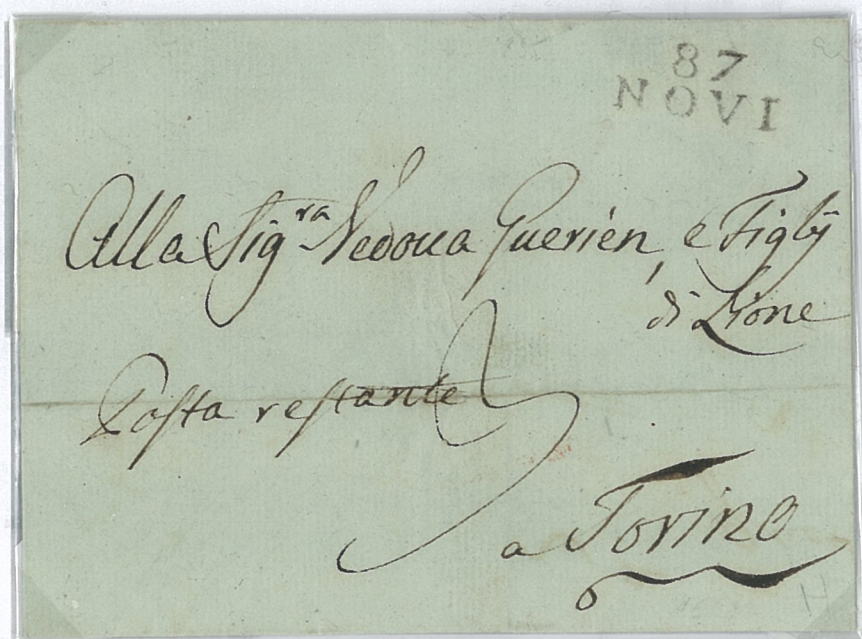 87
NOVI
Alla Sig.ra Vedova Guerién, e Figlij
di Lione
Posta restante
a Torino